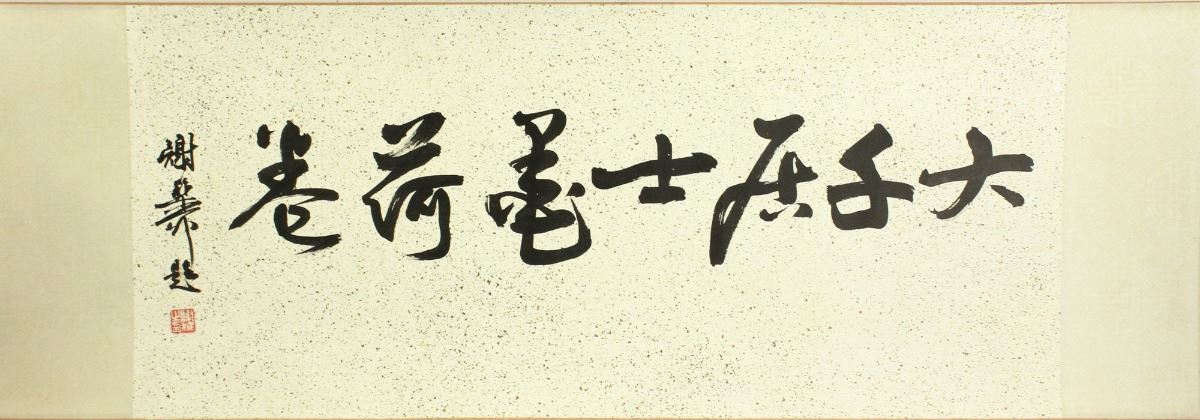 大千居士墨荷卷
謝稚柳題